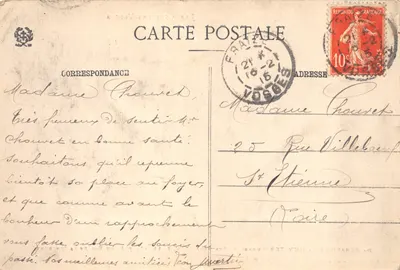 CARTE POSTALE
CORRESPONDANCE
ADRESSE
FRAI
21 K
16 -2
15
VOSGES
10
Madame Chouvet,
Très heureux de sentir Mr
Chouvet en bonne santé.
Souhaitons qu'il reprenne
bientôt sa place au foyer,
et que comme avant le
bonheur d'un rapprochement
vous fasse oublier les soucis du
passé. Vos meilleures amitiés
Madame Chouvet
25 Rue
St Etienne
(Loire)